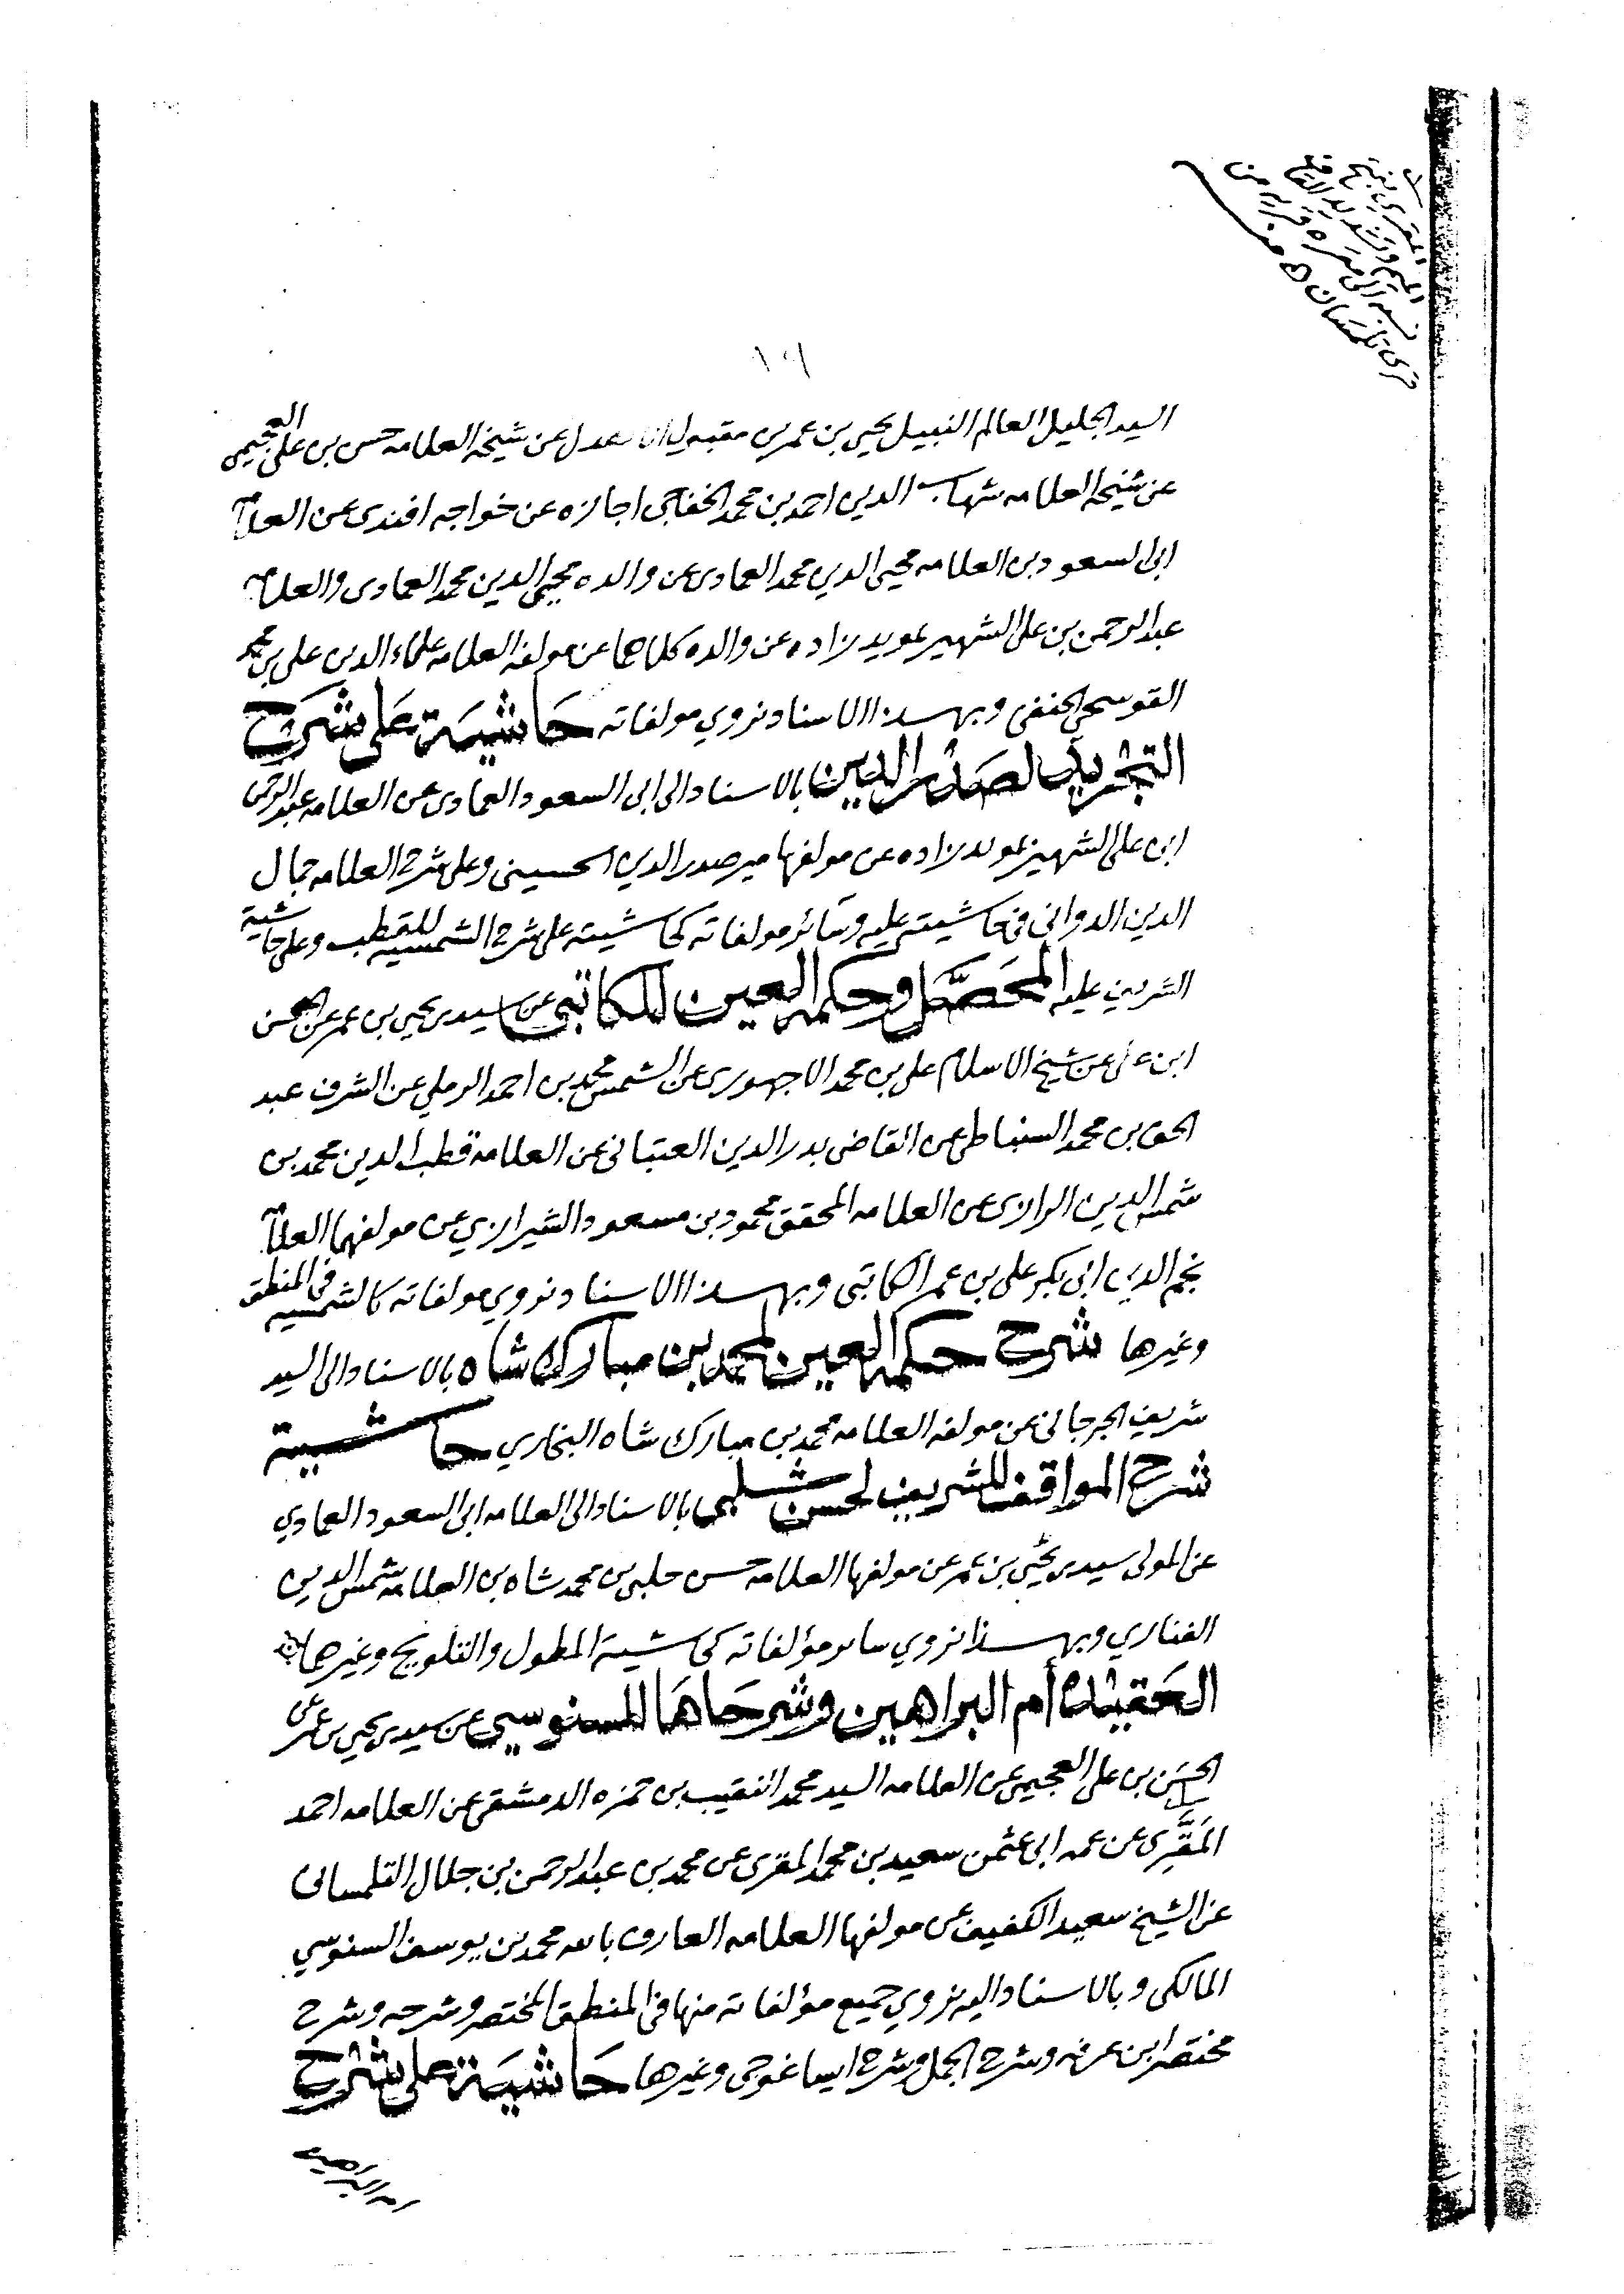 المقري بفتح
الميم وتشديد القاف
نسبة الى مقره قرية من
قرى تلمسان
١٩
السيد الجليل العالم النبيل يحيى بن عمر بن مقبول الاهدل عن شيخه العلامه حسن بن على العجيمى
عن شيخه العلامه شهاب الدين احمد بن محمد الخفاجى اجازه عن خواجه افندى عن العلامه
ابى السعود بن العلامه محيى الدين محمد العمادى عن والده محيى الدين محمد العمادى والعلامه
عبد الرحمن بن على الشهير بمويد زاده عن والده كلاهما عن مولفه العلامه علاء الدين على بن محمد
القوسجى الحنفى وبهذا الاسناد نروي مولفاته حاشية على شرح
التجريد لصدر الدين بالاسناد الى ابى السعود العمادى عن العلامه عبد الرحمن
ابن على الشهير بمويد زاده عن مولفها مير صدر الدين الحسينى وعلى شرح العلامه جمال
الدين الدوانى فى حاشيته عليه وسائر مولفاته كحاشيته على شرح الشمسيه للقطب وعلى حاشية
الشريف عليه المحصل وحكمة العين للكاتبى عن سيدى يحيى بن عمر عن الحسن
ابن على عن شيخ الاسلام على بن محمد الاجهورى عن الشمس محمد بن احمد الرملي عن الشرف عبد
الحق بن محمد السنباطى عن القاضى بدر الدين العتبانى عن العلامة قطب الدين محمد بن
شمس الدين الرازى عن العلامه المحقق محمود بن مسعود الشيرازي عن مولفهما العلامه
نجم الدين ابى بكر على بن عمر الكاتبى وبهذا الاسناد نروي مولفاته كالشمسيه فى المنطق
وغيرها شرح حكمة العين لمحمد بن مبارك شاه بالاسناد الى السيد
شريف الجرجانى عن مولفه العلامه محمد بن مبارك شاه البخاري حاشية
شرح المواقف للشريف لحسن شلبى بالاسناد الى العلامه ابى السعود العمادي
عن المولى سيدى يحيى بن عمر عن مولفها العلامه حسن جلبى بن محمد شاه بن العلامه شمس الدين
الفناري وبهذا نروي سائر مؤلفاته كحاشية المطول والتلويح وغيرهما
العقيدة أم البراهين وشرحاها للسنوسي عن سيدى يحيى بن عمر عن
الحسن بن على العجيمى عن العلامه السيد محمد النقيب بن حمزه الدمشقى عن العلامه احمد
المَقَّرِى عن عمه ابى عثمن سعيد بن محمد المقرى عن محمد بن عبد الرحمن بن جلال التلمسانى
عن الشيخ سعيد الكفيف عن مولفها العلامه العارف بالله محمد بن يوسف السنوسي
المالكى وبالاسناد اليه نروي جميع مؤلفاته منها فى المنطق المختصر وشرحه وشرح
مختصر ابن عرفه وشرح الجمل وشرح ايساغوجى وغيرها حاشية على شرح
ام البراهين